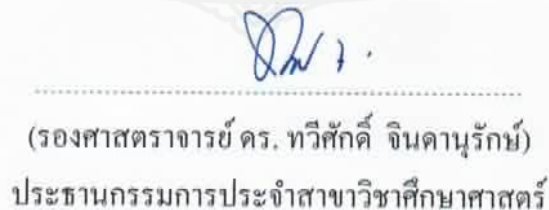 (รองศาสตราจารย์ ดร. ทวีศักดิ์ จินดานุรักษ์)
ประธานกรรมการประจำสาขาวิชาศึกษาศาสตร์